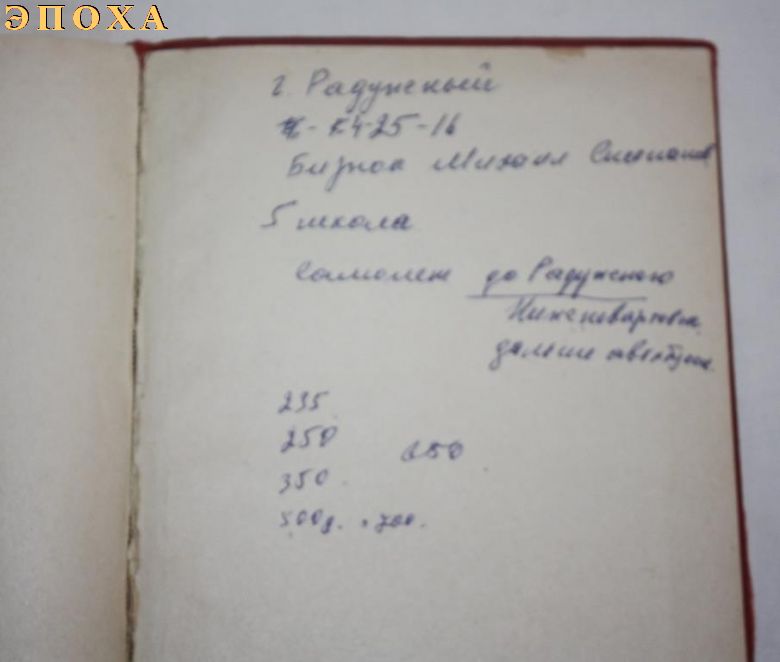 ЭПОХА
г. Радужный
4-25-16
Михаил Степанов
5 школа
самолет до Радужного
Нижневартовск
дальше
235
250 650
350
500д. 700.